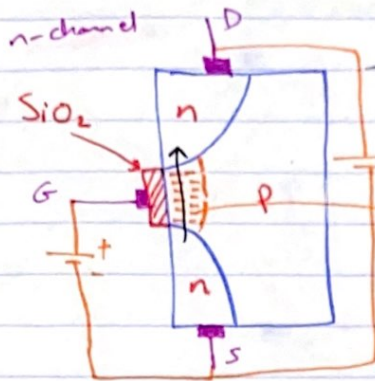 n-channel
D
n
SiO₂
G
P
+
-
n
S